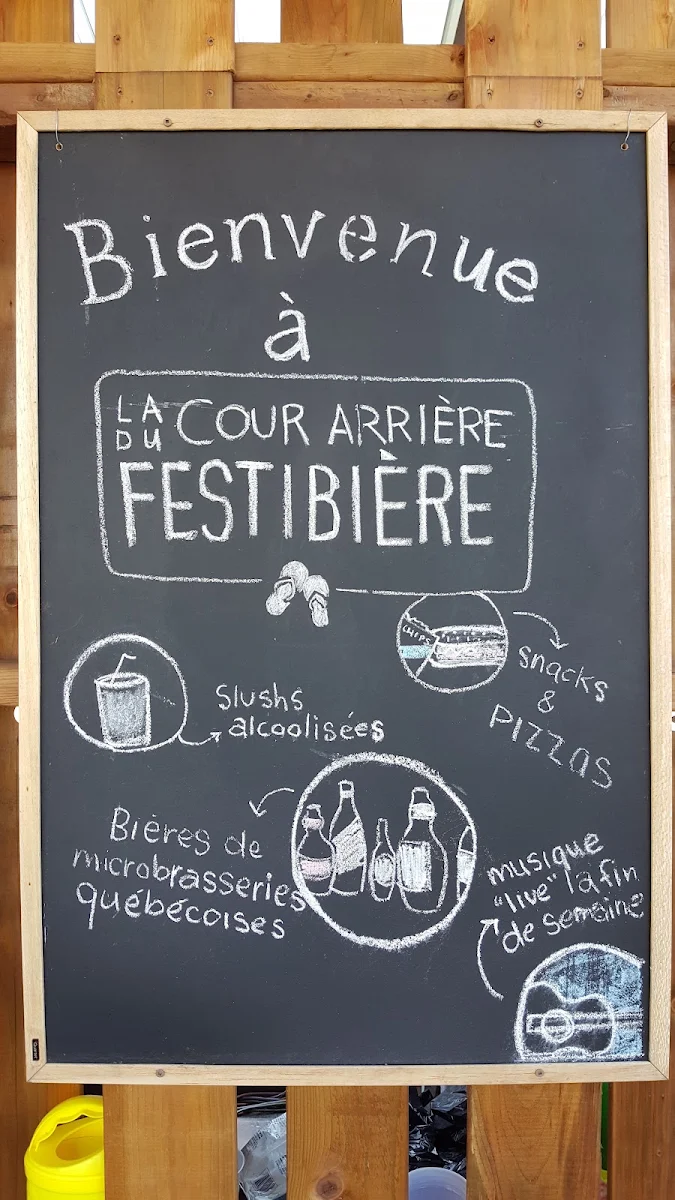 Bienvenue
à
LA COUR ARRIÈRE
DU
FESTIBIÈRE
CHIPS
snacks
&
PIZZAS
Slushs
alcoolisées
Bières de
microbrasseries
québécoises
musique
"live" la fin
de semaine